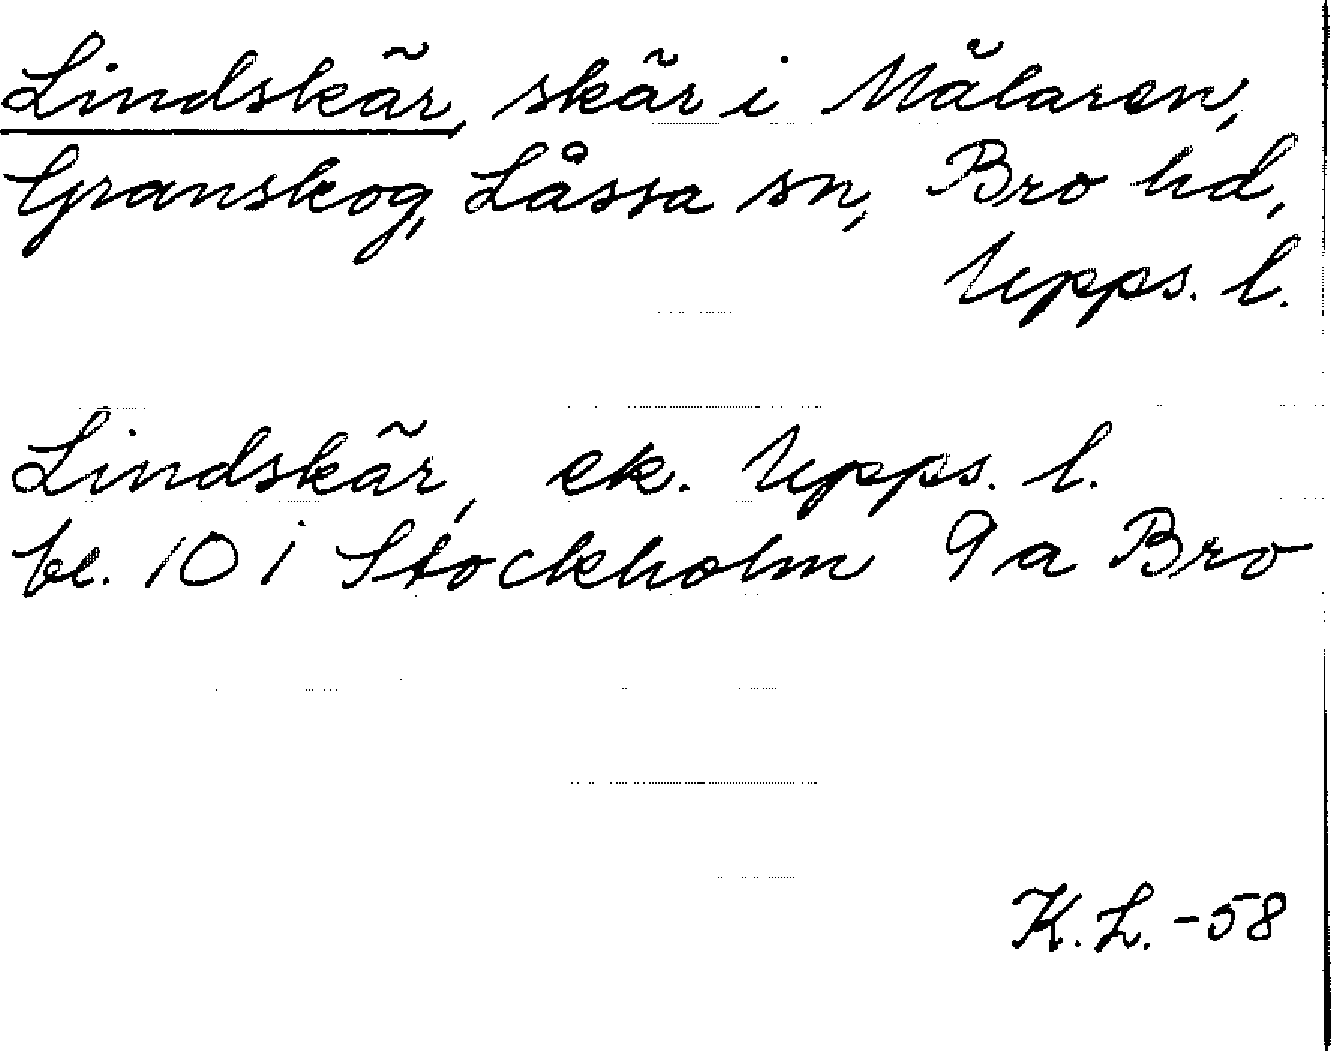 Lindskär, skär i Mälaren,
Granskog, Låssa sn, Bro hd,
Upps. l.
Lindskär, ek. Upps. l.
bl. 10 i Stockholm 9a Bro
K.L. -58